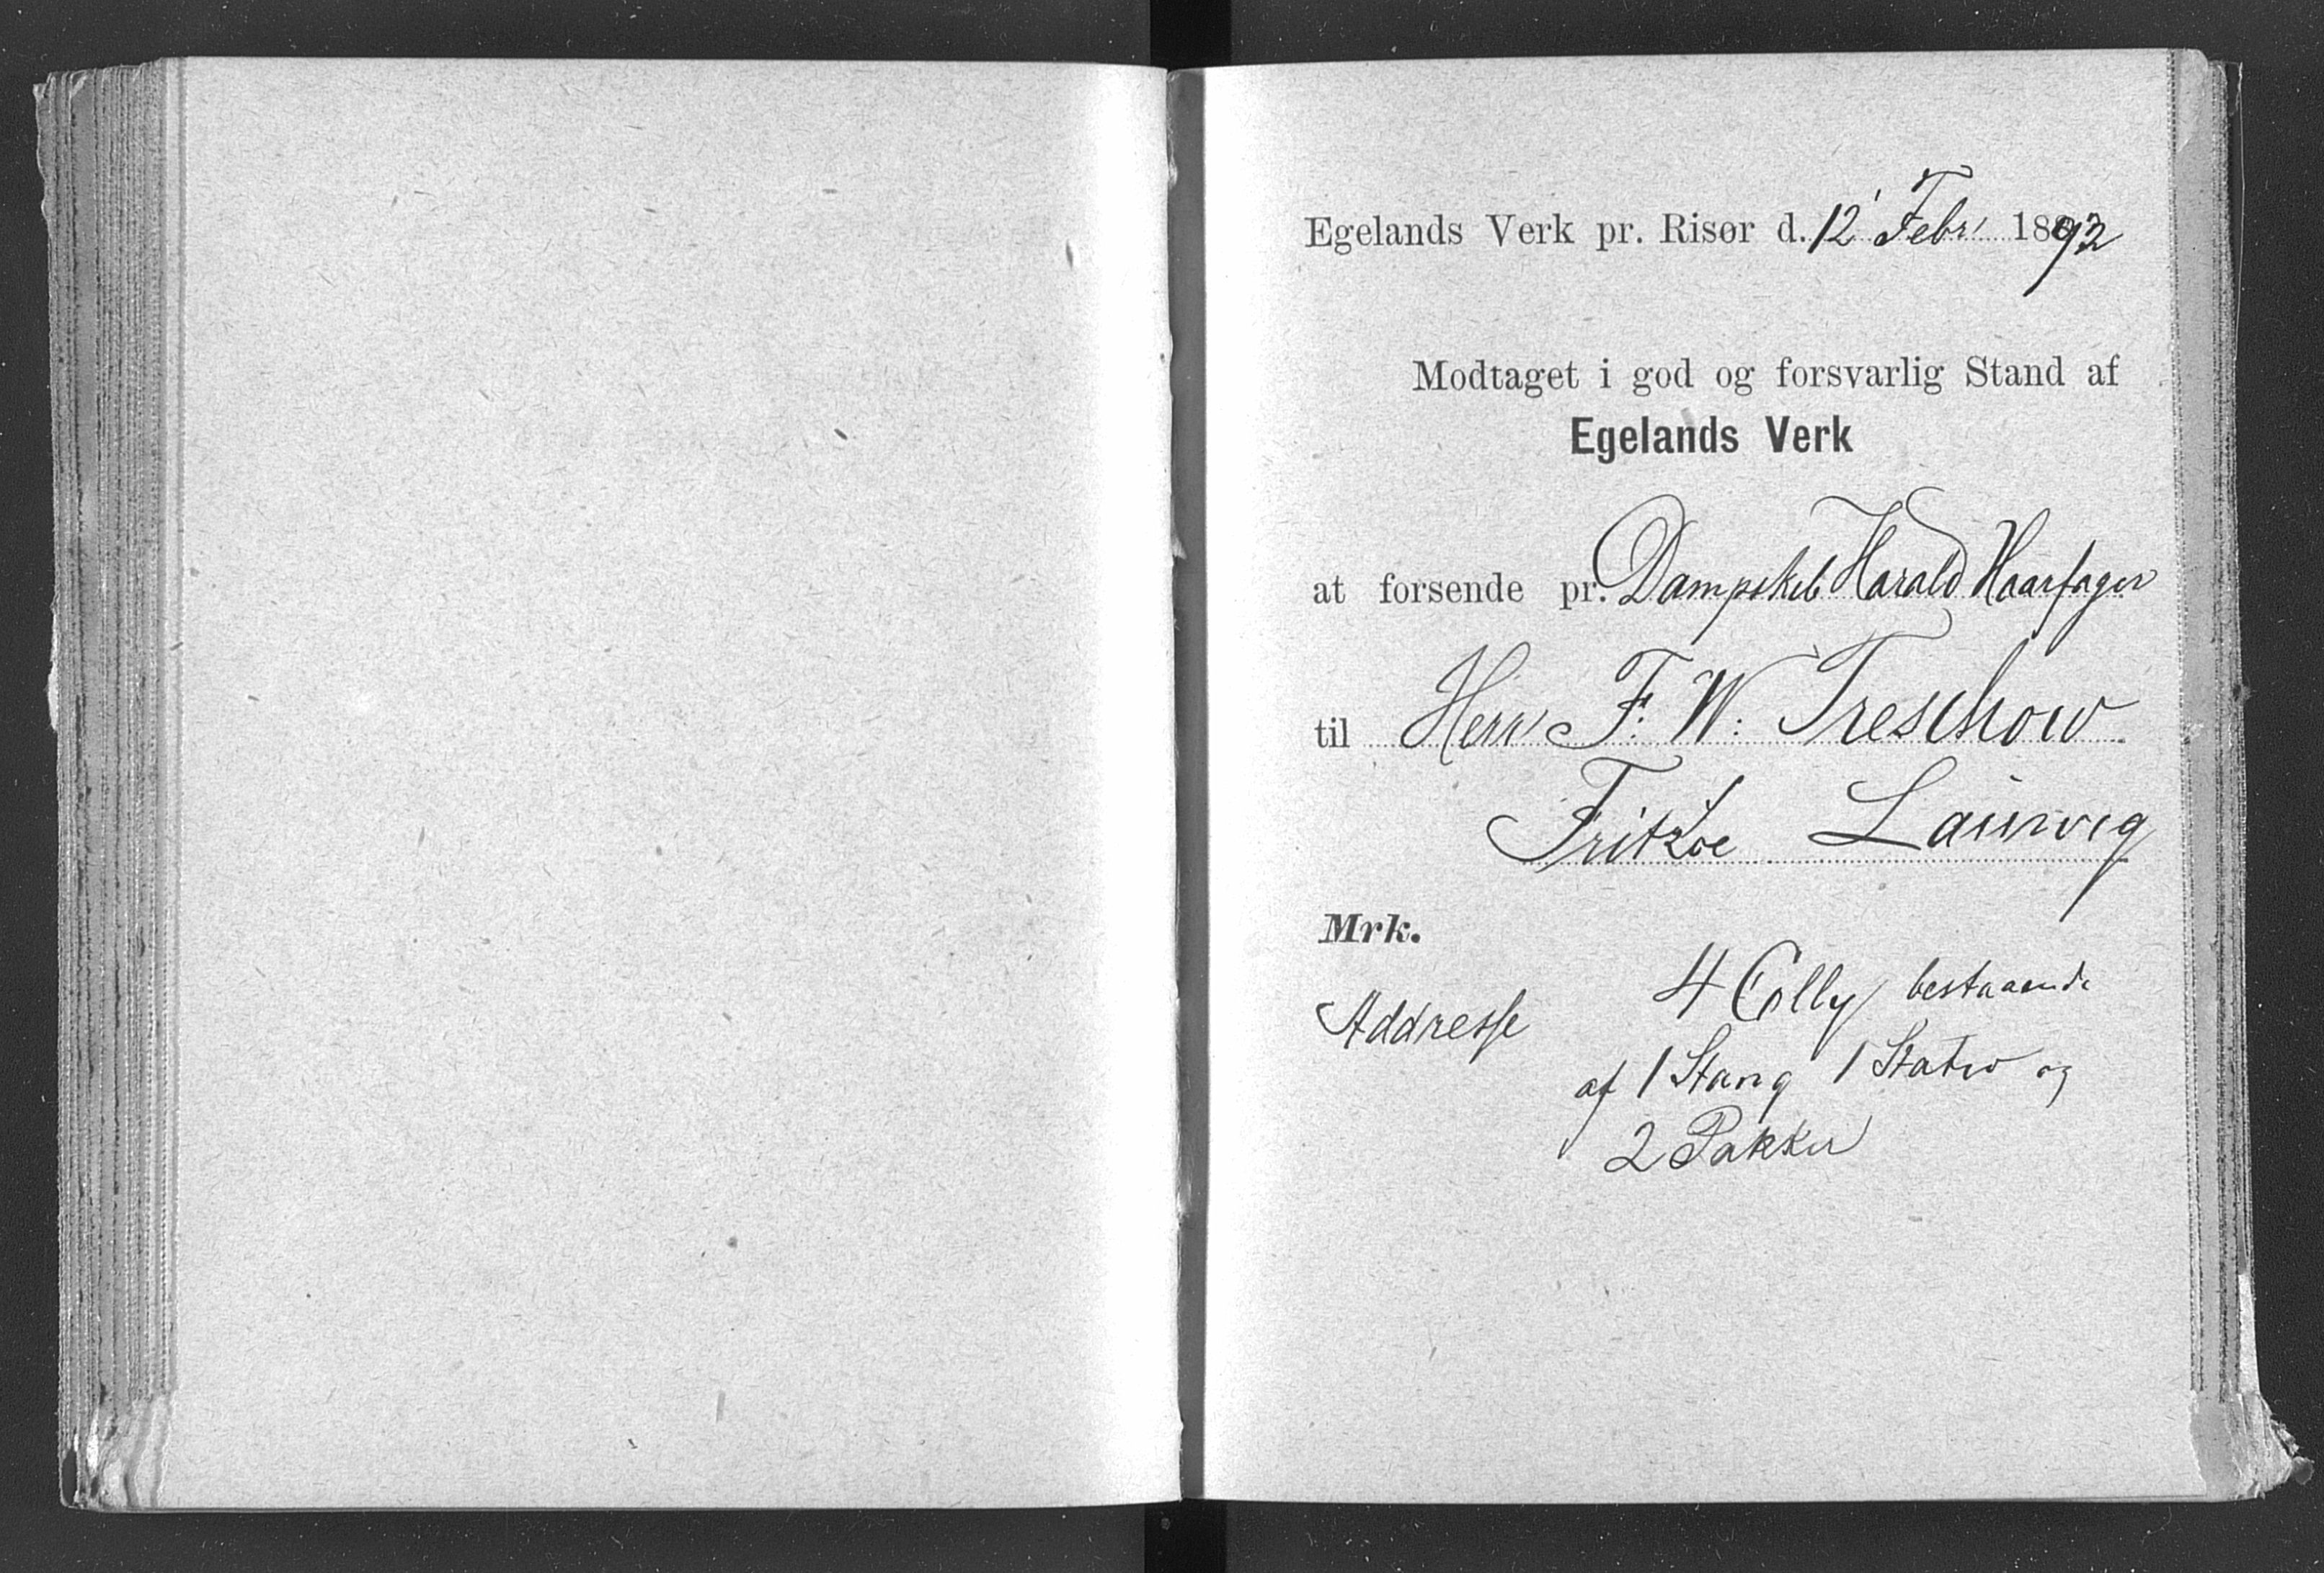 Egelands Verk pr. Risør d. 12' Febr. 1892
Modtaget i god og forsvarlig Stand af
Egelands Verk
at forsende pr. Dampskib Harald Haarfager
til Herr F. W. Treschow
Fritzøe Laurvig
Mrk.
Addresse
4 Colly bestaaende
af 1 Stang 1 Stativ og
2 Pakker